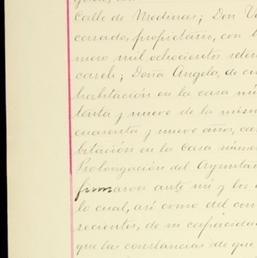 Calle de Medinas; Don V
cerrada, propietario, con
mero mil ochocientos seten
carelí; Doña Angela, de
habitación en la casa nú
tenta y nueve de la mism
cuarenta y nueve años, ca
bitación en la casa núme
Prolongación del Ayunta
firmaron ante mí y los
lo cual, así como del con
recientos, de su capacida
que las constancias de que